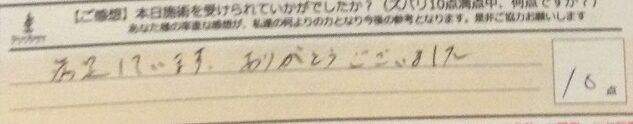 【ご感想】本日施術を受けられていかがでしたか？（ズバリ10点満点中、何点ですか？）
あなた様の率直な感想が、私達の何よりの力となり今後の参考となります。是非ご協力お願いします
満足しています、ありがとうございました
10点